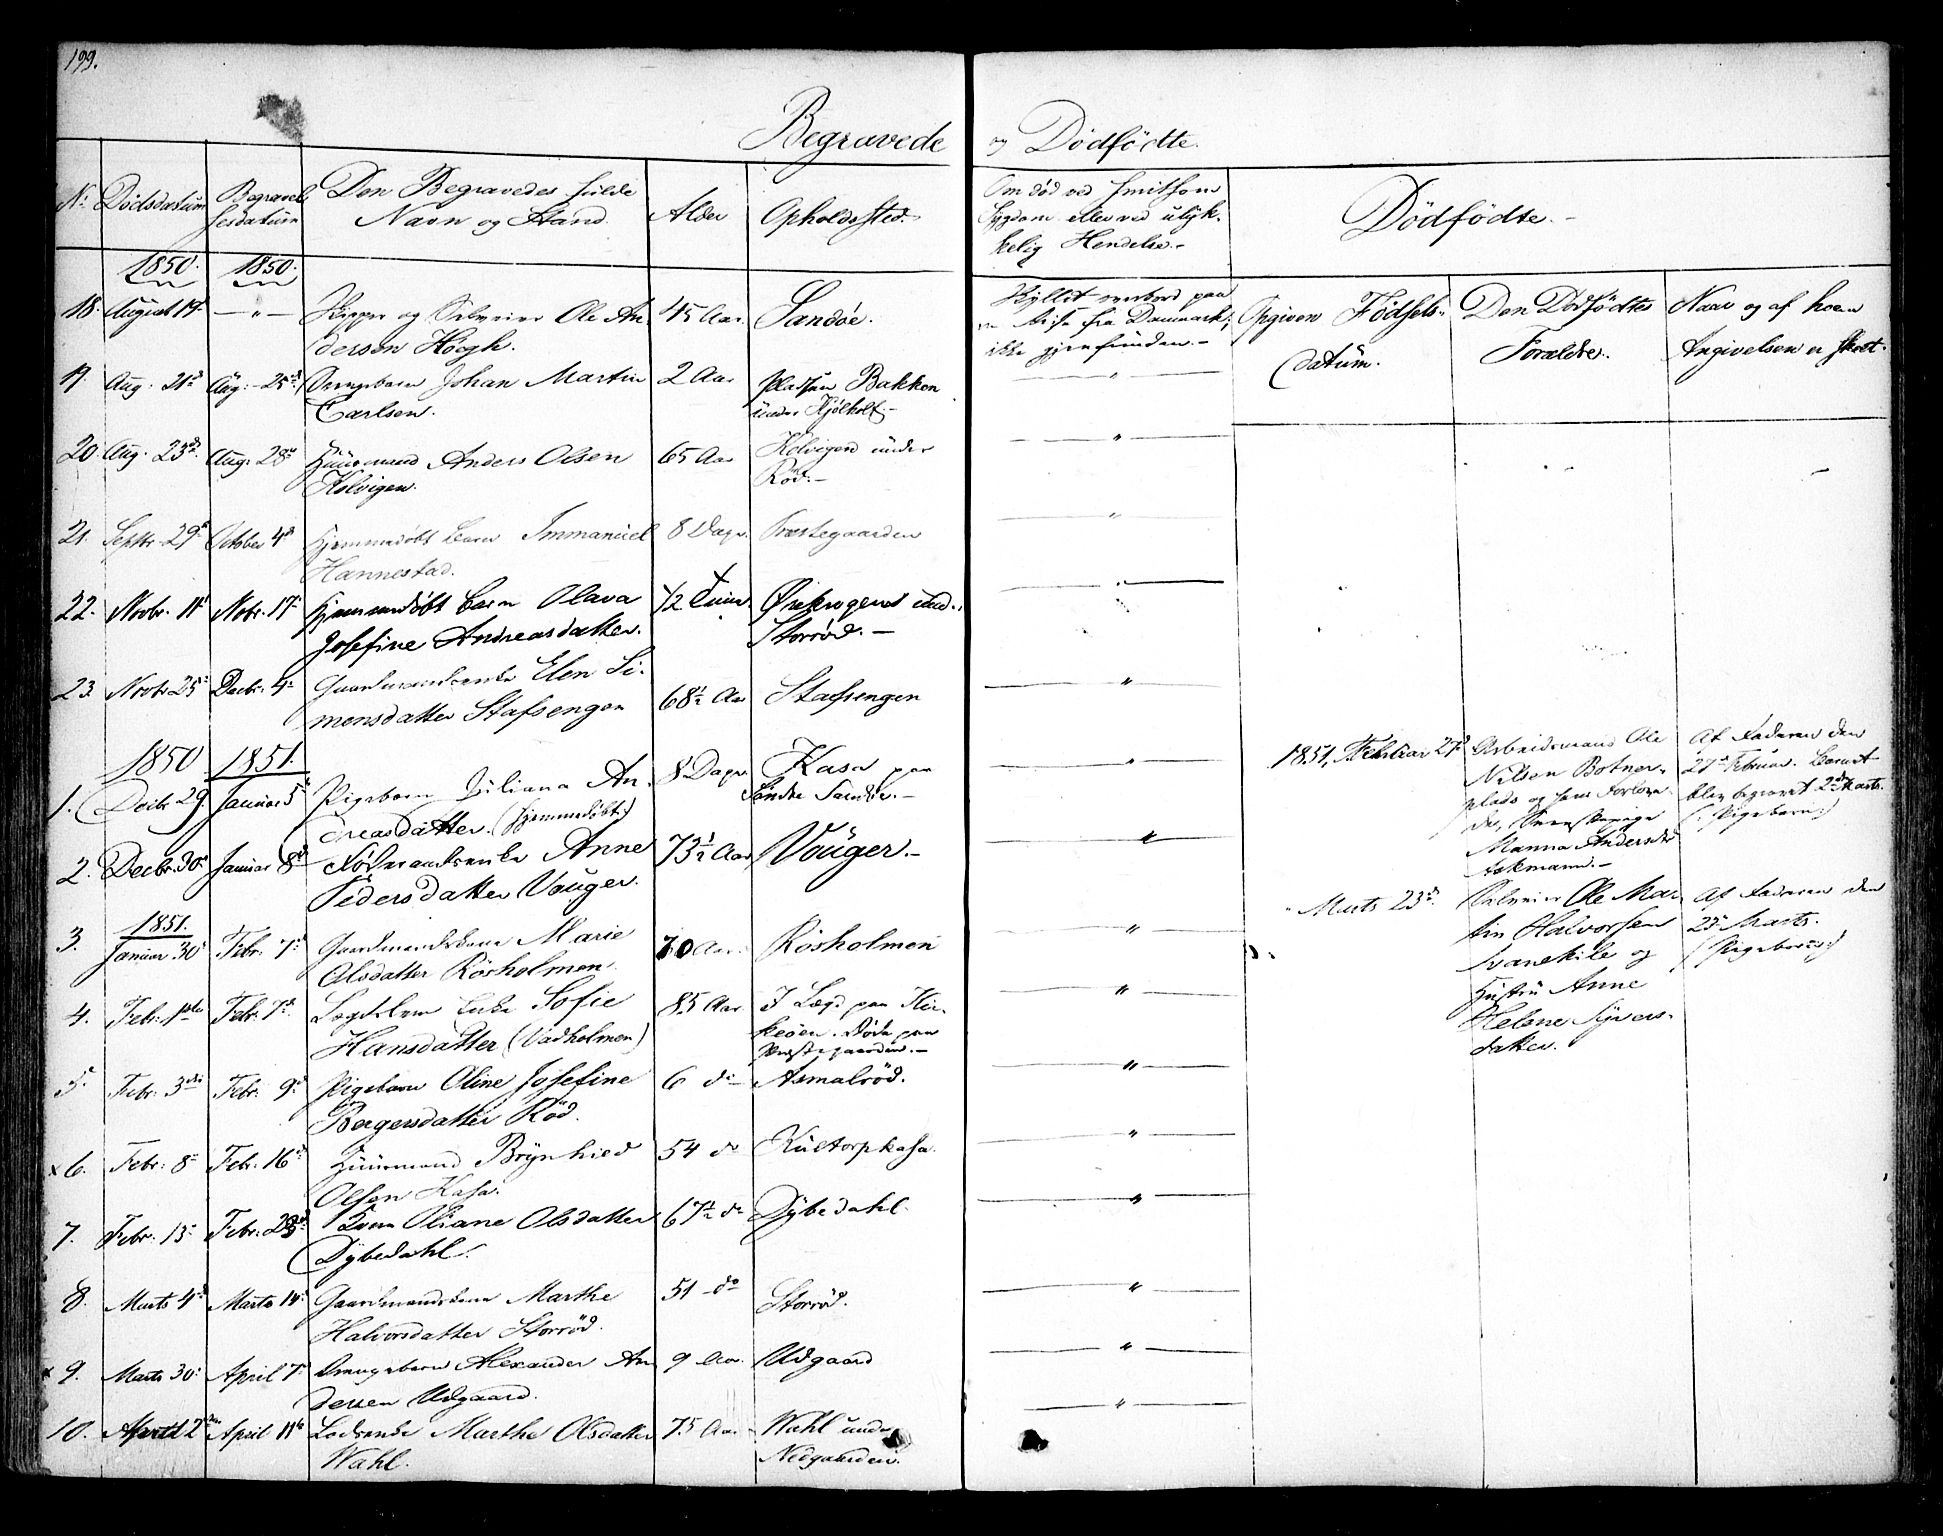 199.
Begravede
og Dödfödte.
No Dödsdatum Begravel-
sesdatum Den Begravedes fulde
Navn og Stand. Alder Opholdssted.
Om död ved smitsom
Sygdom eller ved ulyk-
kelig Hendelse.- Dödfödte.-
Opgiven Födsels-
datum. Den Dödfödtes
Forældre. Naar og af hvem
Angivelsen er skeet.
1850. 1850.
18. August 19. — " — Skipper og Selveier Ole An-
dersen Höegh. 45 Aar. Sandöe. Skyllet overbord paa
en Reise fra Danmark;
ikke gjenfunden.-
19. Aug. 21de Aug. 25de Drengebarn Johan Martin
Carlsen. 2 Aar Pladsen Bakken
under Kjölholt.- — " —
20. Aug. 23de Aug. 28de Huusmand Anders Olsen
Kolvigen. 65 Aar Kolvigen under
Röd.- — " —
21. Septbr. 29de October 4de Hjemmedöbt Barn Immanuel
Hannestad. 8 Dage. Præstegaarden — " —
22. Novbr. 11te Novbr. 17de Hjemmedöbt Barn Olava
Josefine Andreasdatter. 1/2 Time. Ørekrogen und.
Storröd.- — " —
23. Novbr. 25de Decbr. 4de Gaardmandsenke Elen Si-
monsdatter Stafsengen 68 1/2 Aar Stafsengen — " —
1850 1851.
1. Decbr 29 Januar 5te Pigebarn Juliana An-
dreasdatter. (Hjemmedöbt) 8 Dage Kasa paa
Söndre Sandöe.- — " —
2. Decbr. 30te Januar 8de Födsmandsenke Anne
Pedersdatter Vauger. 73 1/2 Aar Vouger.- — " —
1851.
3. Januar 30te Febr. 7de Gaardmandskone Marie
Olsdatter Rösholmen. 70 Aar. Rösholmen — " —
4. Febr. 1ste Febr. 7de Lægdslem Enke Sofie
Hansdatter (Vadholmen) 85 Aar I Lægd paa Kir-
keöen. Döde paa
Præstegaarden.- — " —
5. Febr. 3die Febr. 9de Pigebarn Oline Josefine
Börgersdatter Röd. 6 do Asmalröd. — " —
x 6. Febr. 8de Febr. 16de Huusmand Brynhild
Olsen Kasa. 54 do Kultorpkasa. — " —
7. Febr. 13de Febr. 23de Kone Oliane Olsdatter
Dybedahl. 67 1/2 do Dybedahl. — " —
8. Marts 4de Marts 14de Gaardmandskone Marthe
Halvorsdatter Storröd. 51 do Storröd. — " —
x 9. Marts 30te April 7de Drengebarn Alexander An-
dersen Udgaard. 9 Aar. Udgaard — " —
10. April 2den April 11te Ladsenke Marthe Olsdatter
Wahl. 75 Aar Wahl under
Nedgaarden. — " —
1851, Februar 27de Arbeidsmand Ole
Nilsen Botner-
plads og hans Forlove-
de, Svenskepige
Manna Andersdr
Askmann.- Af Faderen den
27de Februar. Barnet
blev begravet 2den Marts.
(: Pigebarn:)
" Marts 23de. Selveier Ole Mar-
tin Halvorsen
Svanekile og
Hustru Anne
Helene Syvers-
datter. Af Faderen den
25de Marts.
(Pigebarn:)